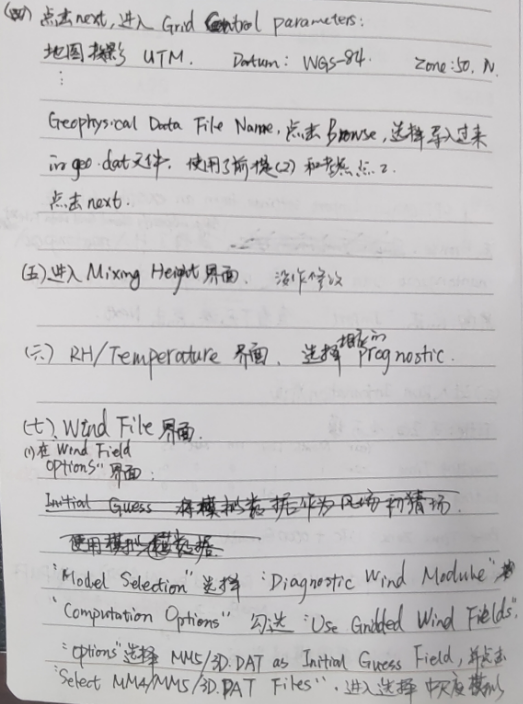 (四) 点击next,进入 Grid Control parameters:
地图投影 UTM. Datum: WGS-84. Zone:50, N.
⋮
Geophysical Data File Name, 点击 Browse, 选择导入过来
in geo.dat文件. 使用了前提(2) 和 点2.
点击next.
(五) 进入 Mixing Height 界面. 没作修改
(六) RH/Temperature 界面、选择相应的 prognostic.
(七). Wind File 界面.
(1) 在 Wind Field
Options" 界面:
Initial Guess 将模拟数据作为风场初猜场.
使用模拟数据
"Model Selection" 选择 "Diagnostic Wind Module",
"Computation Options" 勾选 "Use Gridded Wind Fields".
"options" 选择 MM5/3D.DAT as Initial Guess Field, 并点击
"Select MM4/MM5/3D.DAT Files". 进入选择中尺度模拟